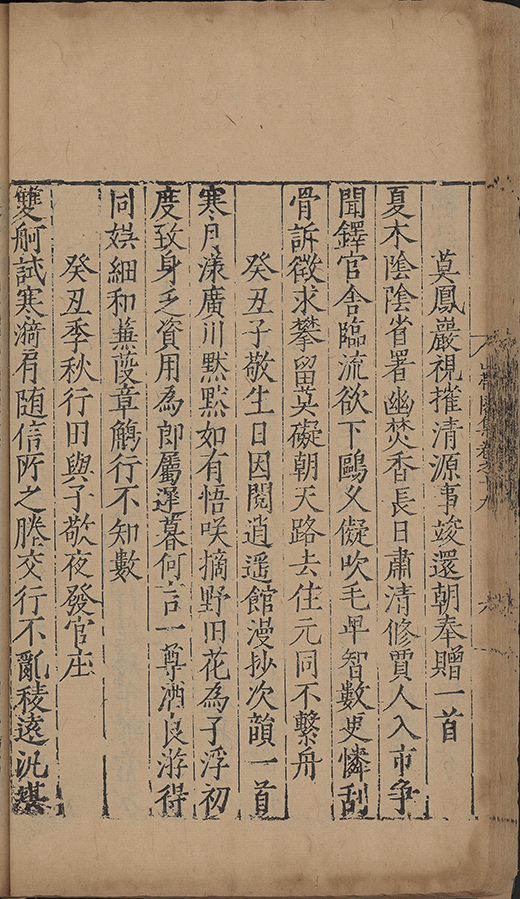 莫鳳巖視搉清源事竣還朝奉贈一首
夏木陰陰省署幽焚香長日肅清修賈人入市爭
聞鐸官舍臨流欲下鷗久儗吹毛卑智數更憐刮
骨訴徵求攀留莫礙朝天路去住元同不繫舟
癸丑子敬生日因閱逍遥館漫抄次韻一首
寒月漾廣川黙黙如有悟咲摘野田花為子浮初
度致身乏資用為郎屬遲暮何言一尊酒良游得
同娯細和蒹葭章觴行不知數
癸丑季秋行田與子敬夜發官庄
雙舸試寒漪有随信所之縢交行不亂稜遠汎堪